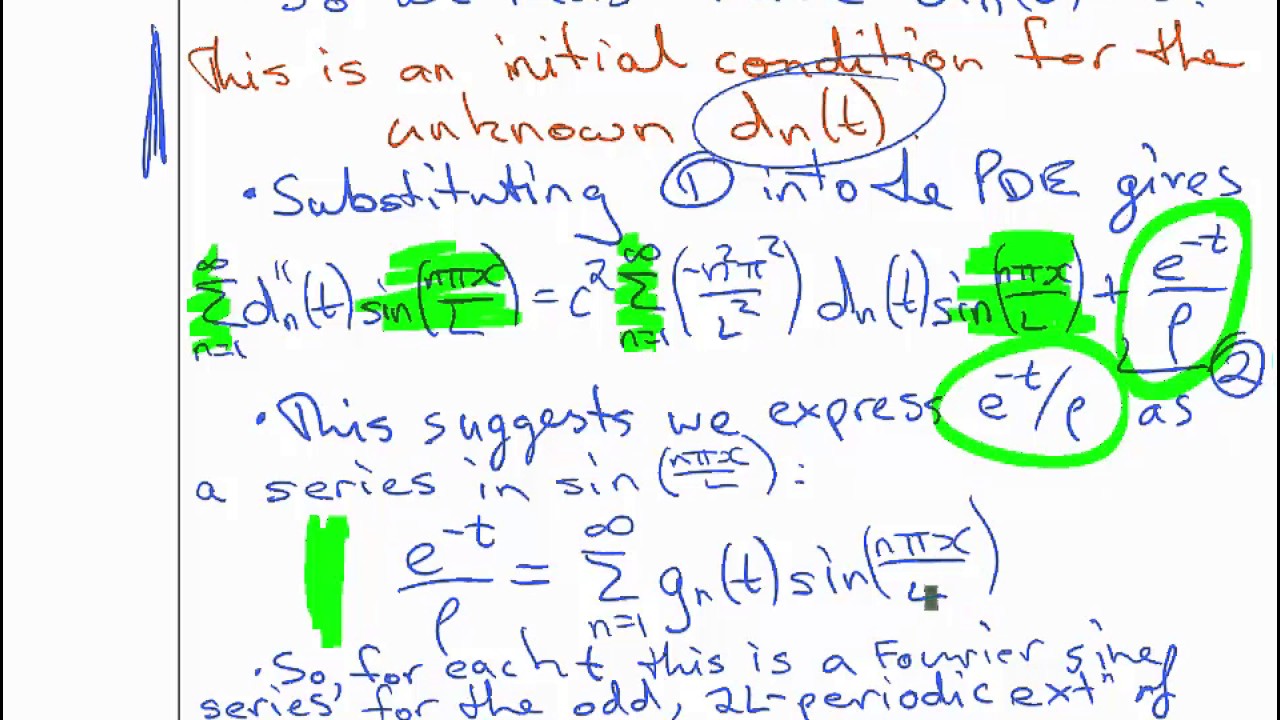 This is an initial condition for the
unknown dn(t).
• Substituting ① into the PDE gives
∞ Σ n=1 dn''(t) sin(nπx/L) = c² ∞ Σ n=1 (-n²π²/L²) dn(t) sin(nπx/L) + e^-t/ρ ②
• This suggests we express e^-t/ρ as
a series in sin(nπx/L):
e^-t/ρ = ∞ Σ n=1 gn(t) sin(nπx/L)
• So, for each t this is a Fourier sine
series for the odd, 2L-periodic extⁿ of